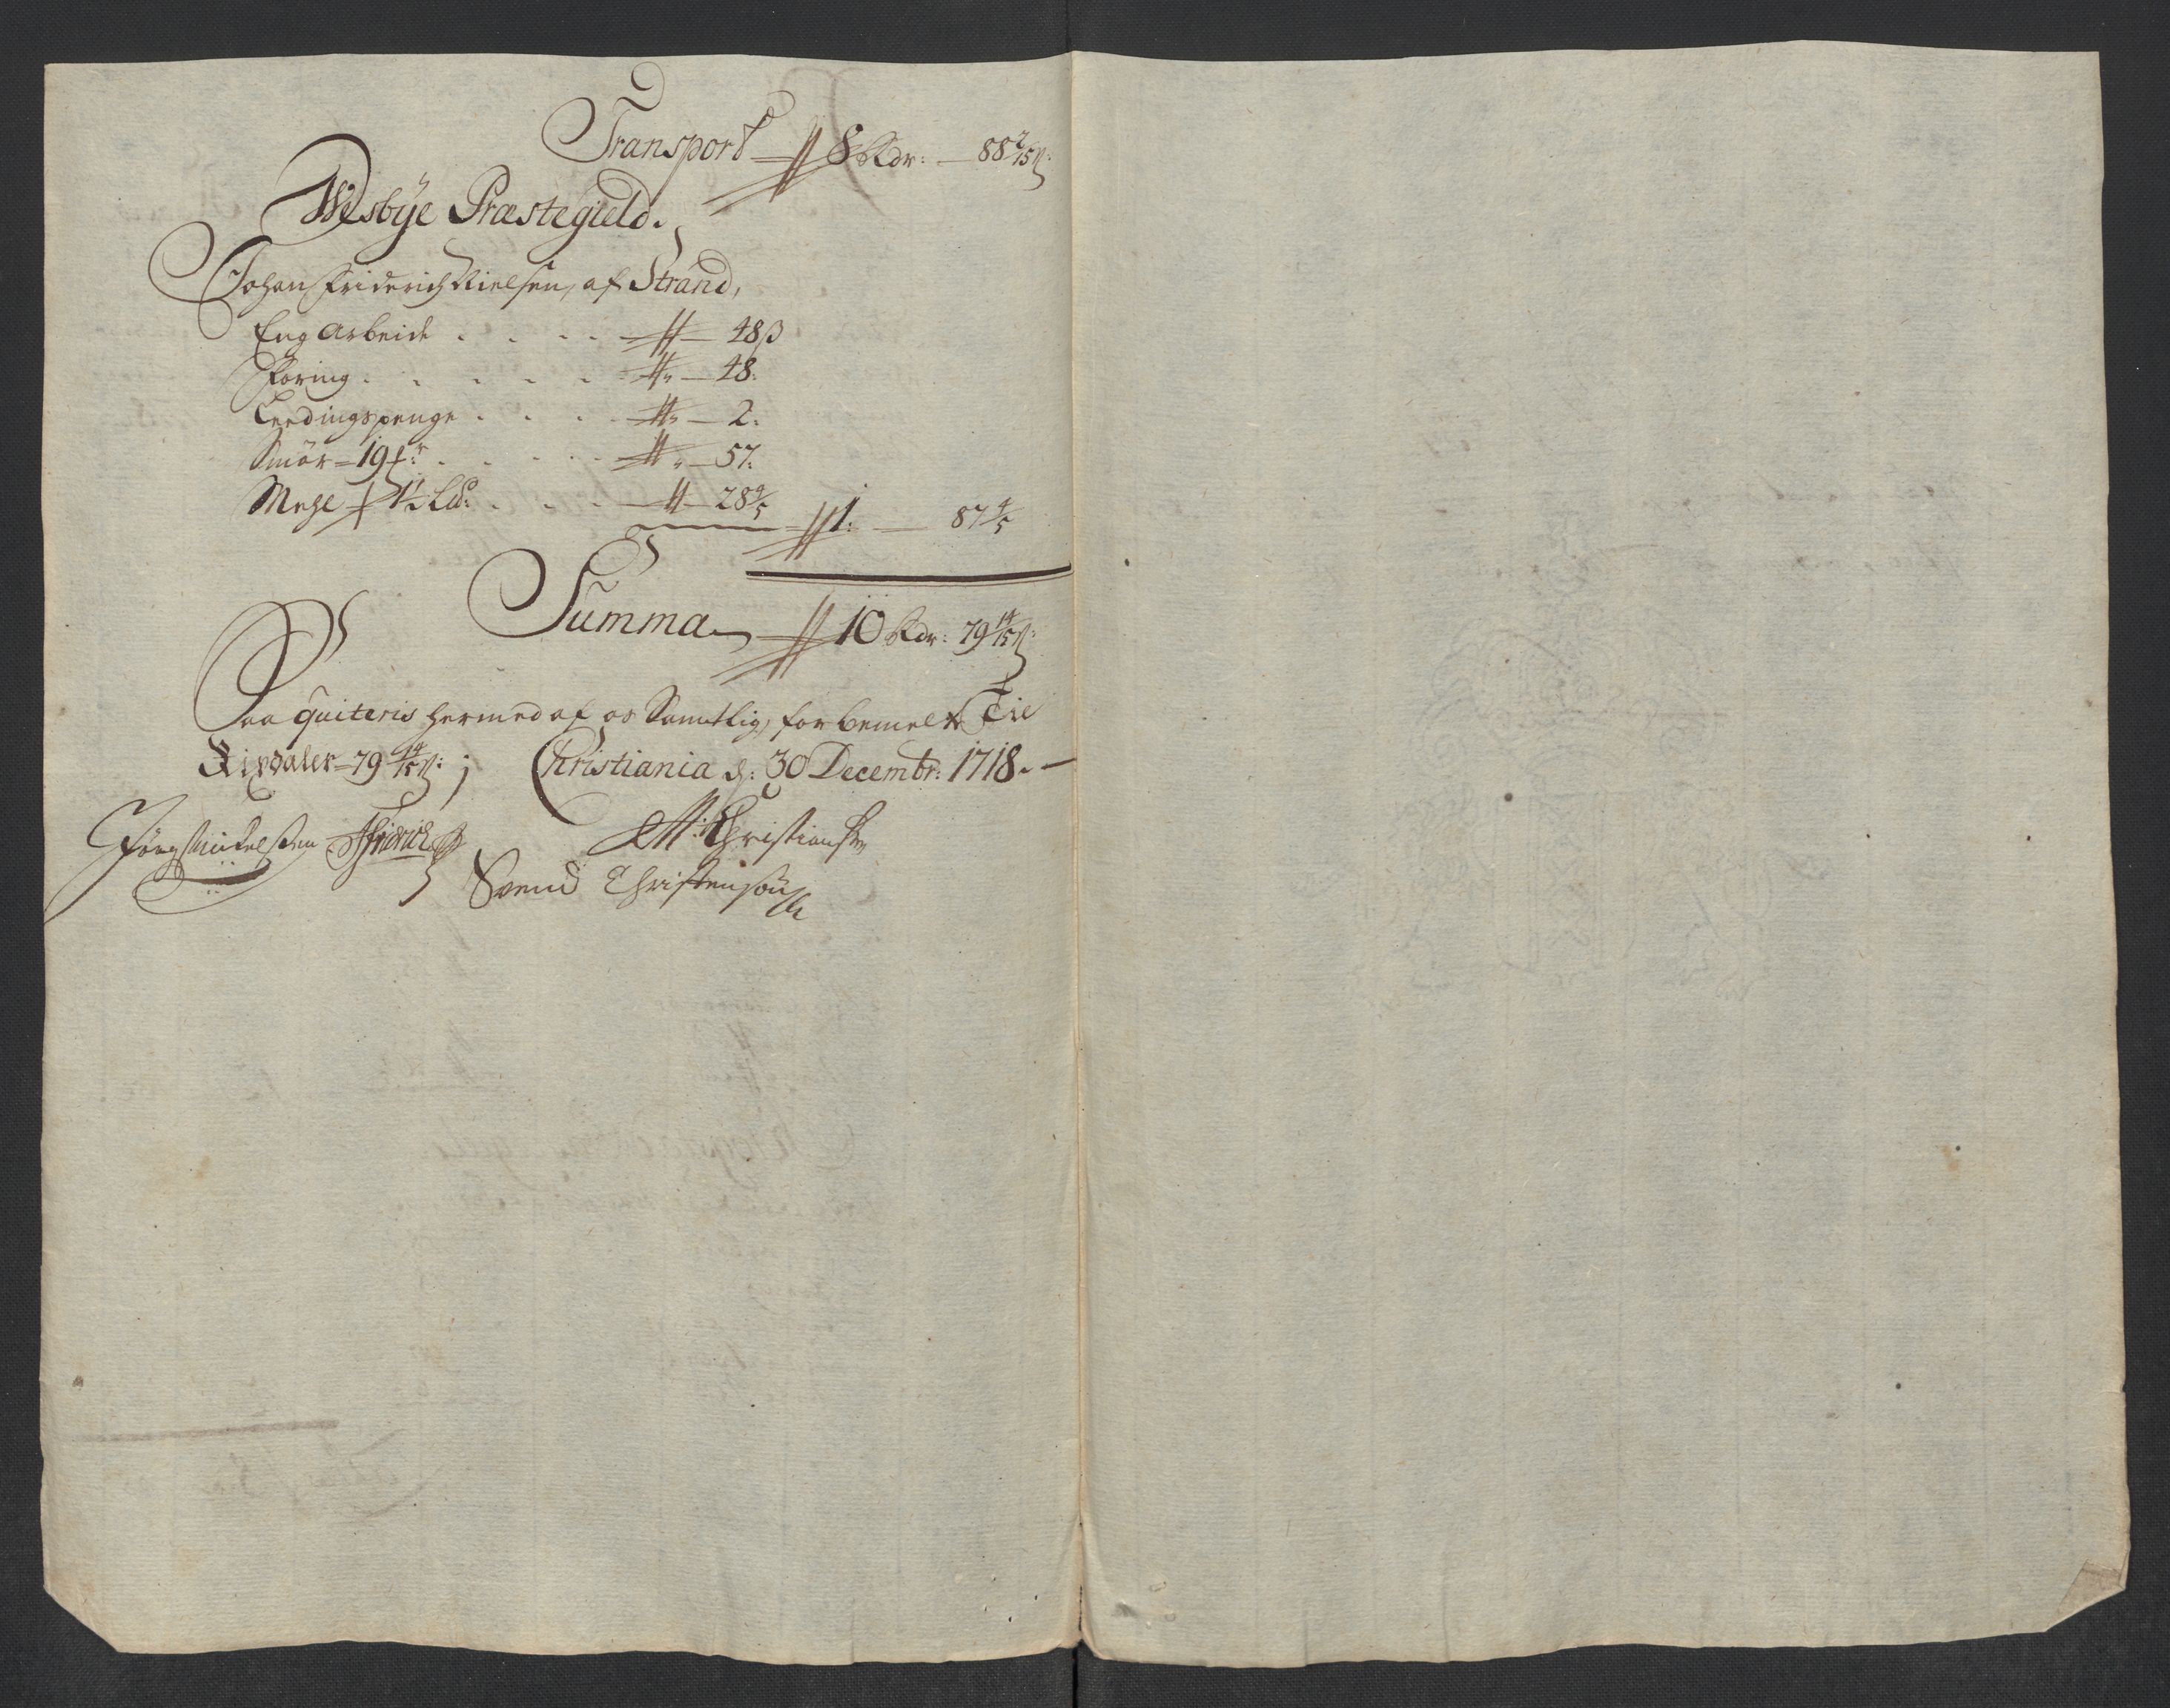 Transport — 8 Rdr: — 88 2/15 ß:
Wesbÿe Præstegield.
Johan Friderich Nielsen, af Strand,
Eng Arbeide . . . . — 48 ß
Foring . . . . . — 48.
Leedingspenge . . . — 2.
Smör = 19 . . . . — 57.
Meehl 1½ Ld: . . . — 28 4/5
1: — 87 4/5
Summa — 10 Rdr: 79 14/15 ß:
Saa quiteris hermed af os Samtlig, for bemelte Tie
Rixdaler = 79 14/15 ß: ; Christiania d: 30 Decembr: 1718. —
Christians
Svend Christensön